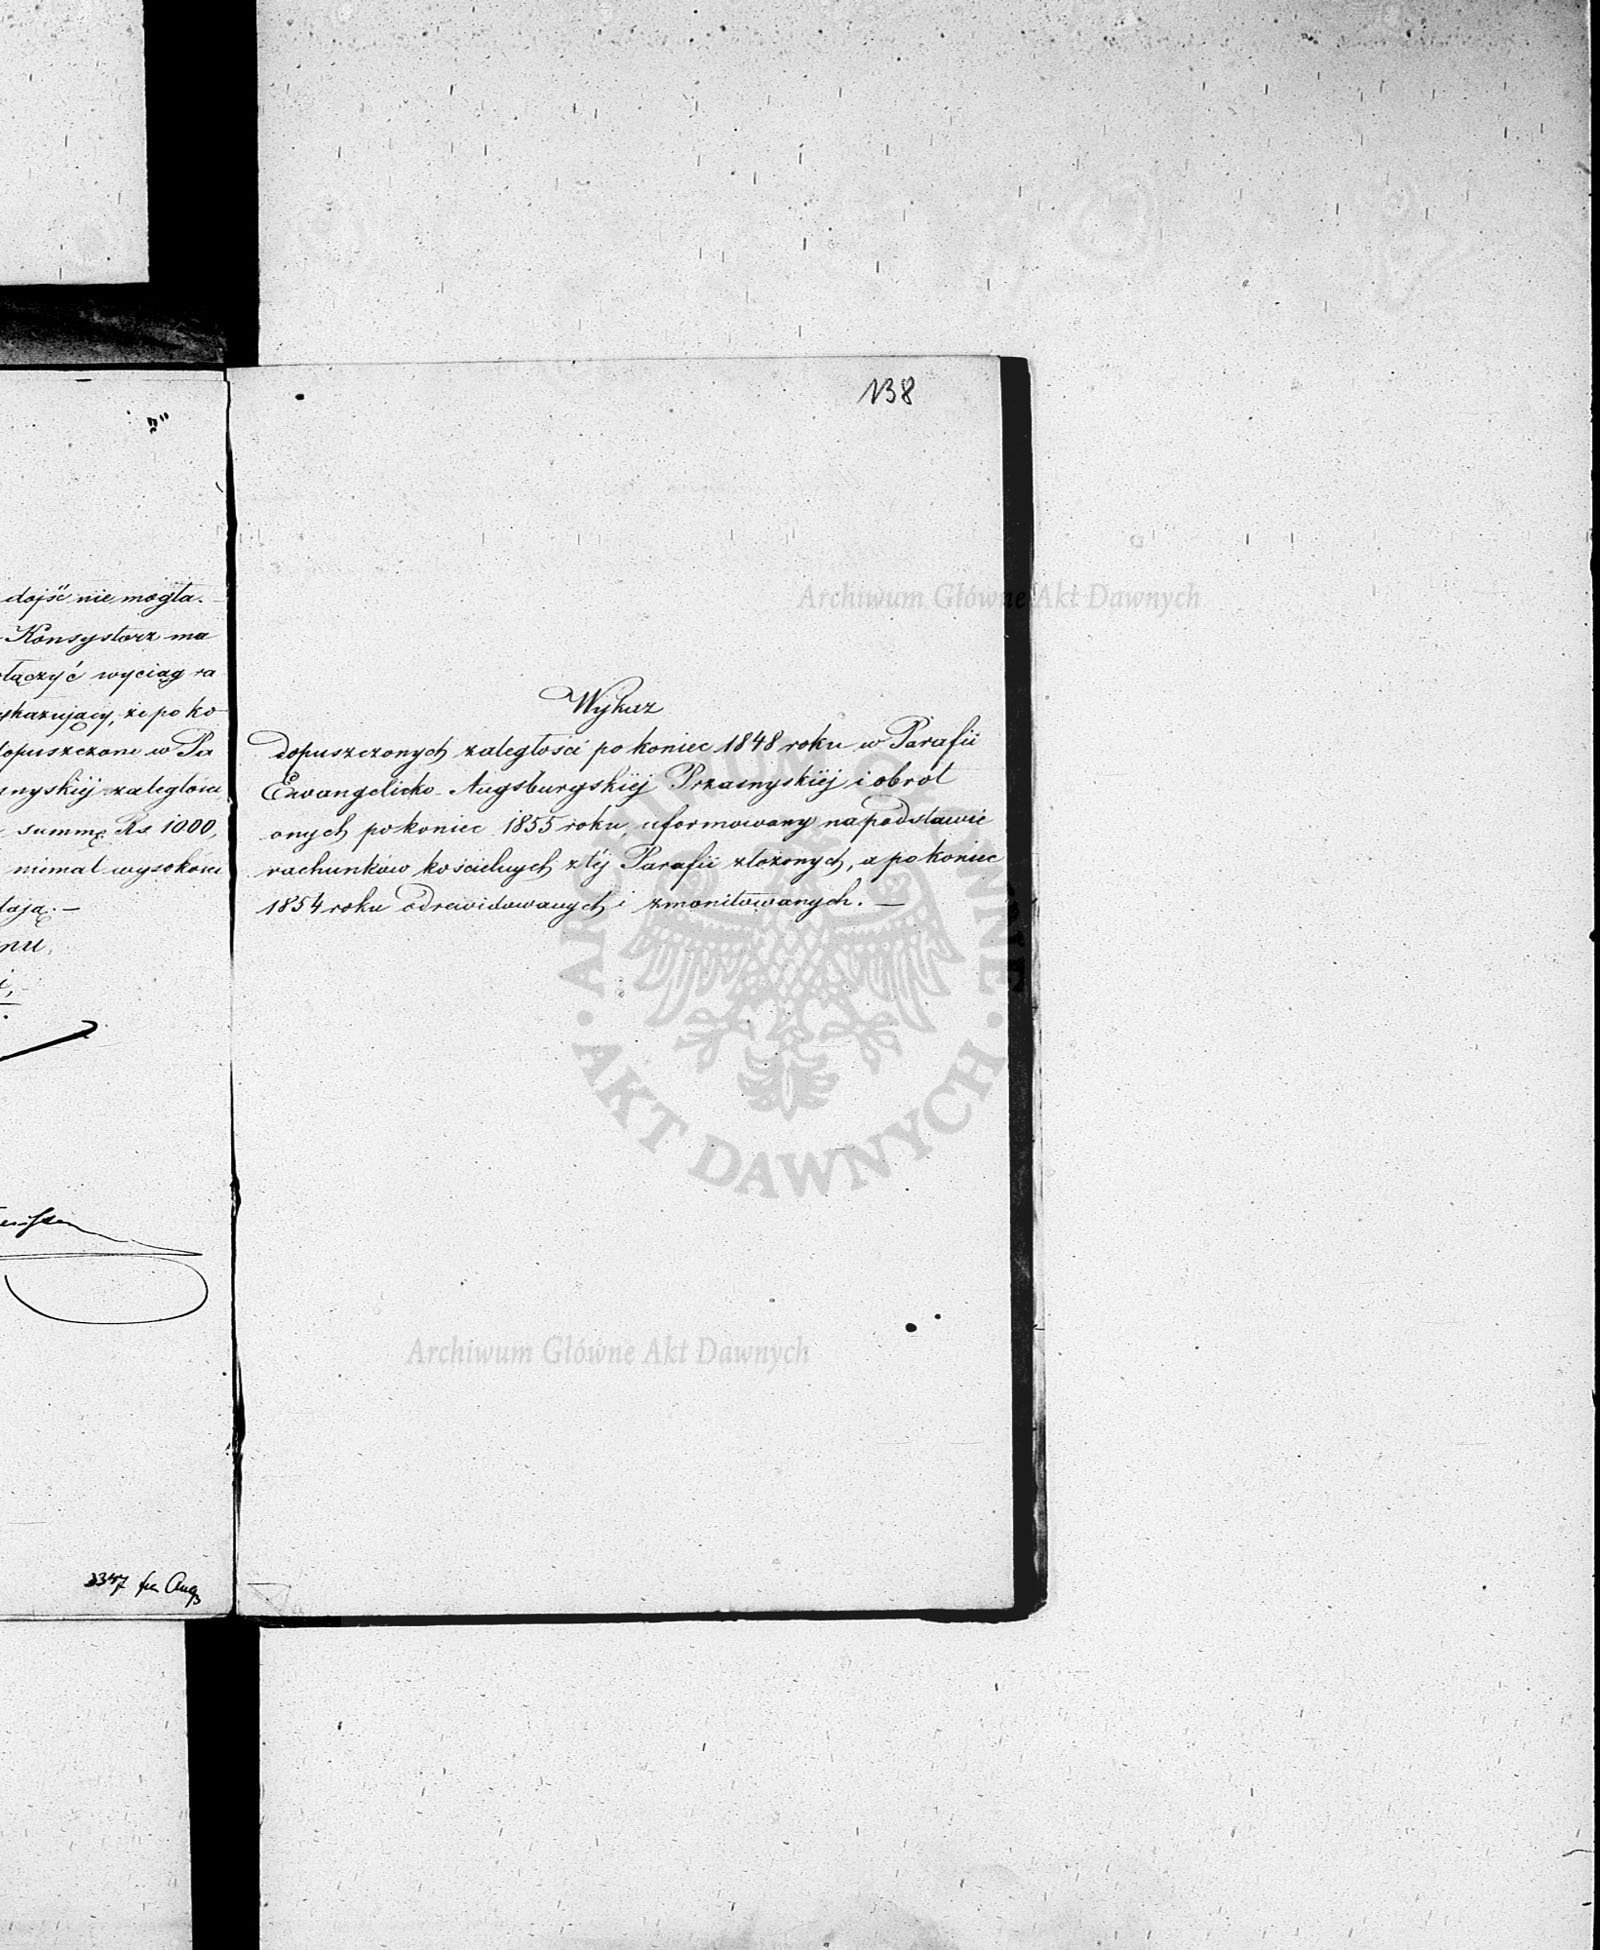 dojść nie mogła.
Konsystorz ma
łączyć wyciąg ra
skazujący, że po ko
dopuszczone w Pa
snyskiéj zaległości
summę Rs 1000,
niemal wysokości
dają. —
nu,
3347 Aug
138
Wykaz
dopuszczonych zaległości po koniec 1848 roku w Parafii
Ewangelicko-Augsburgskiéj Przasnyskiéj i obrot
onych po koniec 1855 roku, uformowany na podstawie
rachunków kościelnych z téj Parafii złożonych, a po koniec
1854 roku odrewidowanych i zmonitowanych. —
Archiwum Główne Akt Dawnych
ARCHIWUM GŁÓWNE · AKT DAWNYCH ·
Archiwum Główne Akt Dawnych